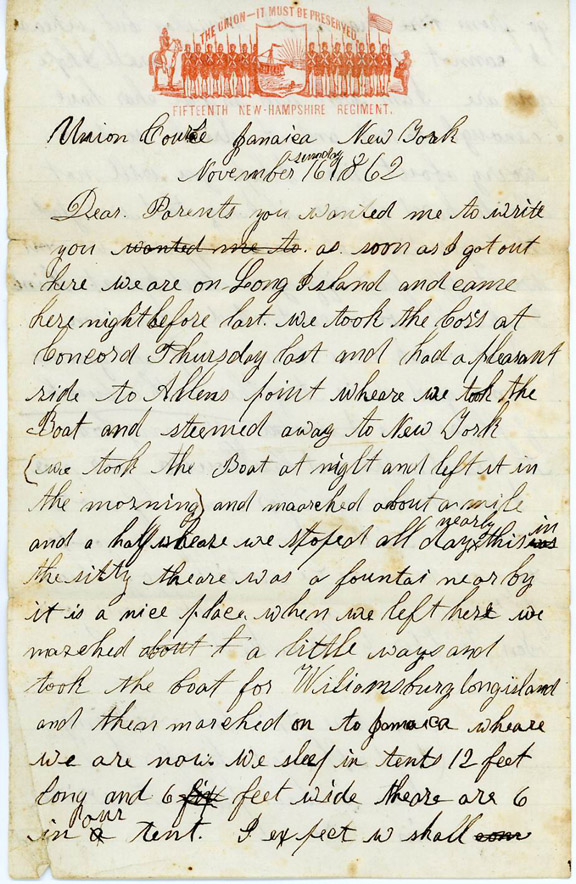 THE UNION—IT MUST BE PRESERVED
FIFTEENTH NEW-HAMPSHIRE REGIMENT.
Union Course Jamaica New York
November Sunday 16 1862
Dear. Parents you wanted me to write
you wanted me to. as. soon as I got out
here we are on Long Island and came
here night before last. we took the Cors at
Concord Thursday last and had a pleasant
ride to Allens point wheare we took the
Boat and steemed away to New York
(we took the Boat at night and left it in
the morning) and maarched about a mile
and a half wheare we stoped all day nearly this in
the sitty theare was a fountai near by
it is a nice place. when we left here we
marched about t a little ways and
took the boat for Wiliamsburg longisland
and then marched on to Jamaica wheare
we are now. we sleep in tents 12 feet
long and 6 six feet wide theare are 6
in our a tent. I expect w shall come